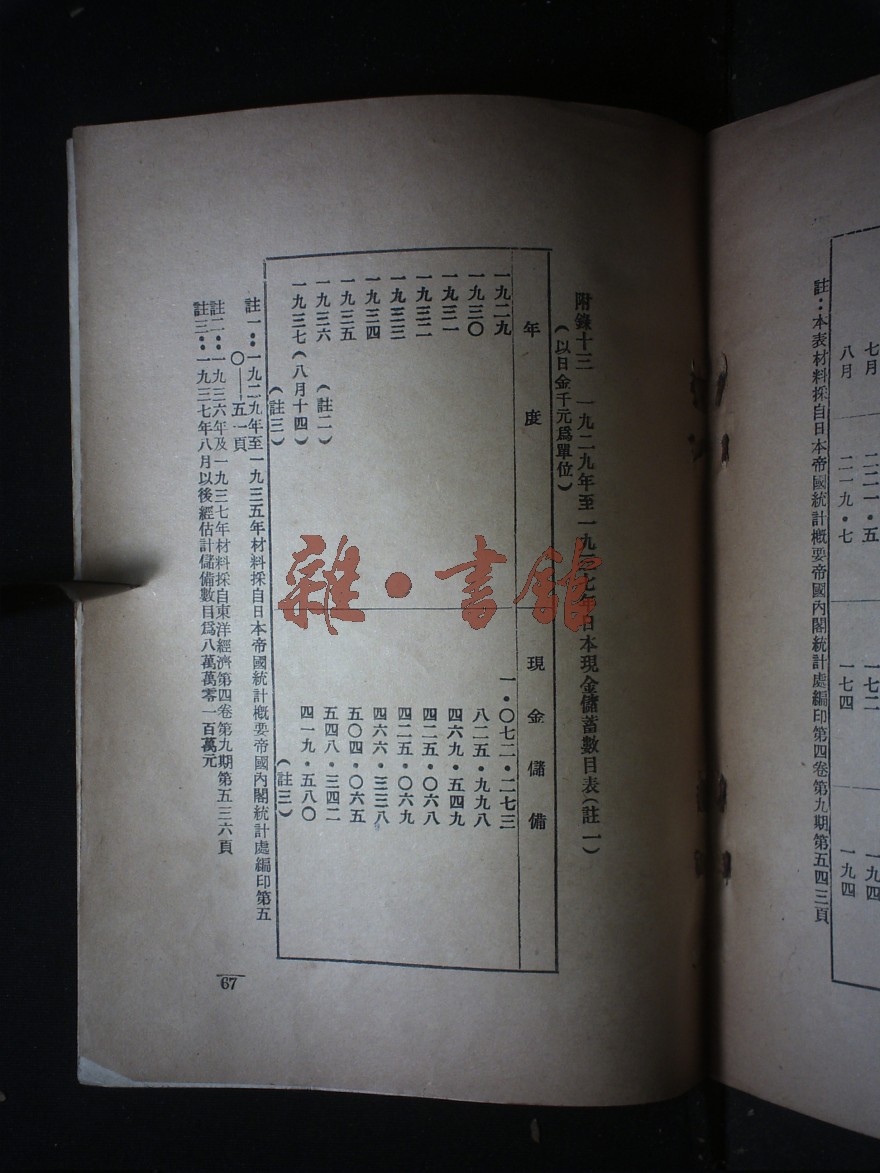 七月 二二一・五 一七二 一九四
八月 二一九・七 一七四 一九四
註：本表材料採自日本帝國統計概要帝國內閣統計處編印第四卷第九期第五四三頁
附錄十三 一九二九年至一九三七年日本現金儲蓄數目表(註一)
(以日金千元爲單位)
年度 現金儲備
一九二九 一・〇七二・二七三
一九三〇 八二五・九九八
一九三一 四六九・五四九
一九三二 四二五・〇六八
一九三三 四二五・〇六九
一九三四 四六六・三三八
一九三五 五〇四・〇六五
一九三六(註二) 五四八・三四二
一九三七(八月十四) 四一九・五八〇
(註三) (註三)
註一：一九二九年至一九三五年材料採自日本帝國統計概要帝國內閣統計處編印第五
〇——五一頁
註二：一九三六年及一九三七年材料採自東洋經濟第四卷第九期第五三六頁
註三：一九三七年八月以後經估計儲備數目爲八萬萬零一百萬元
67
雜・書館